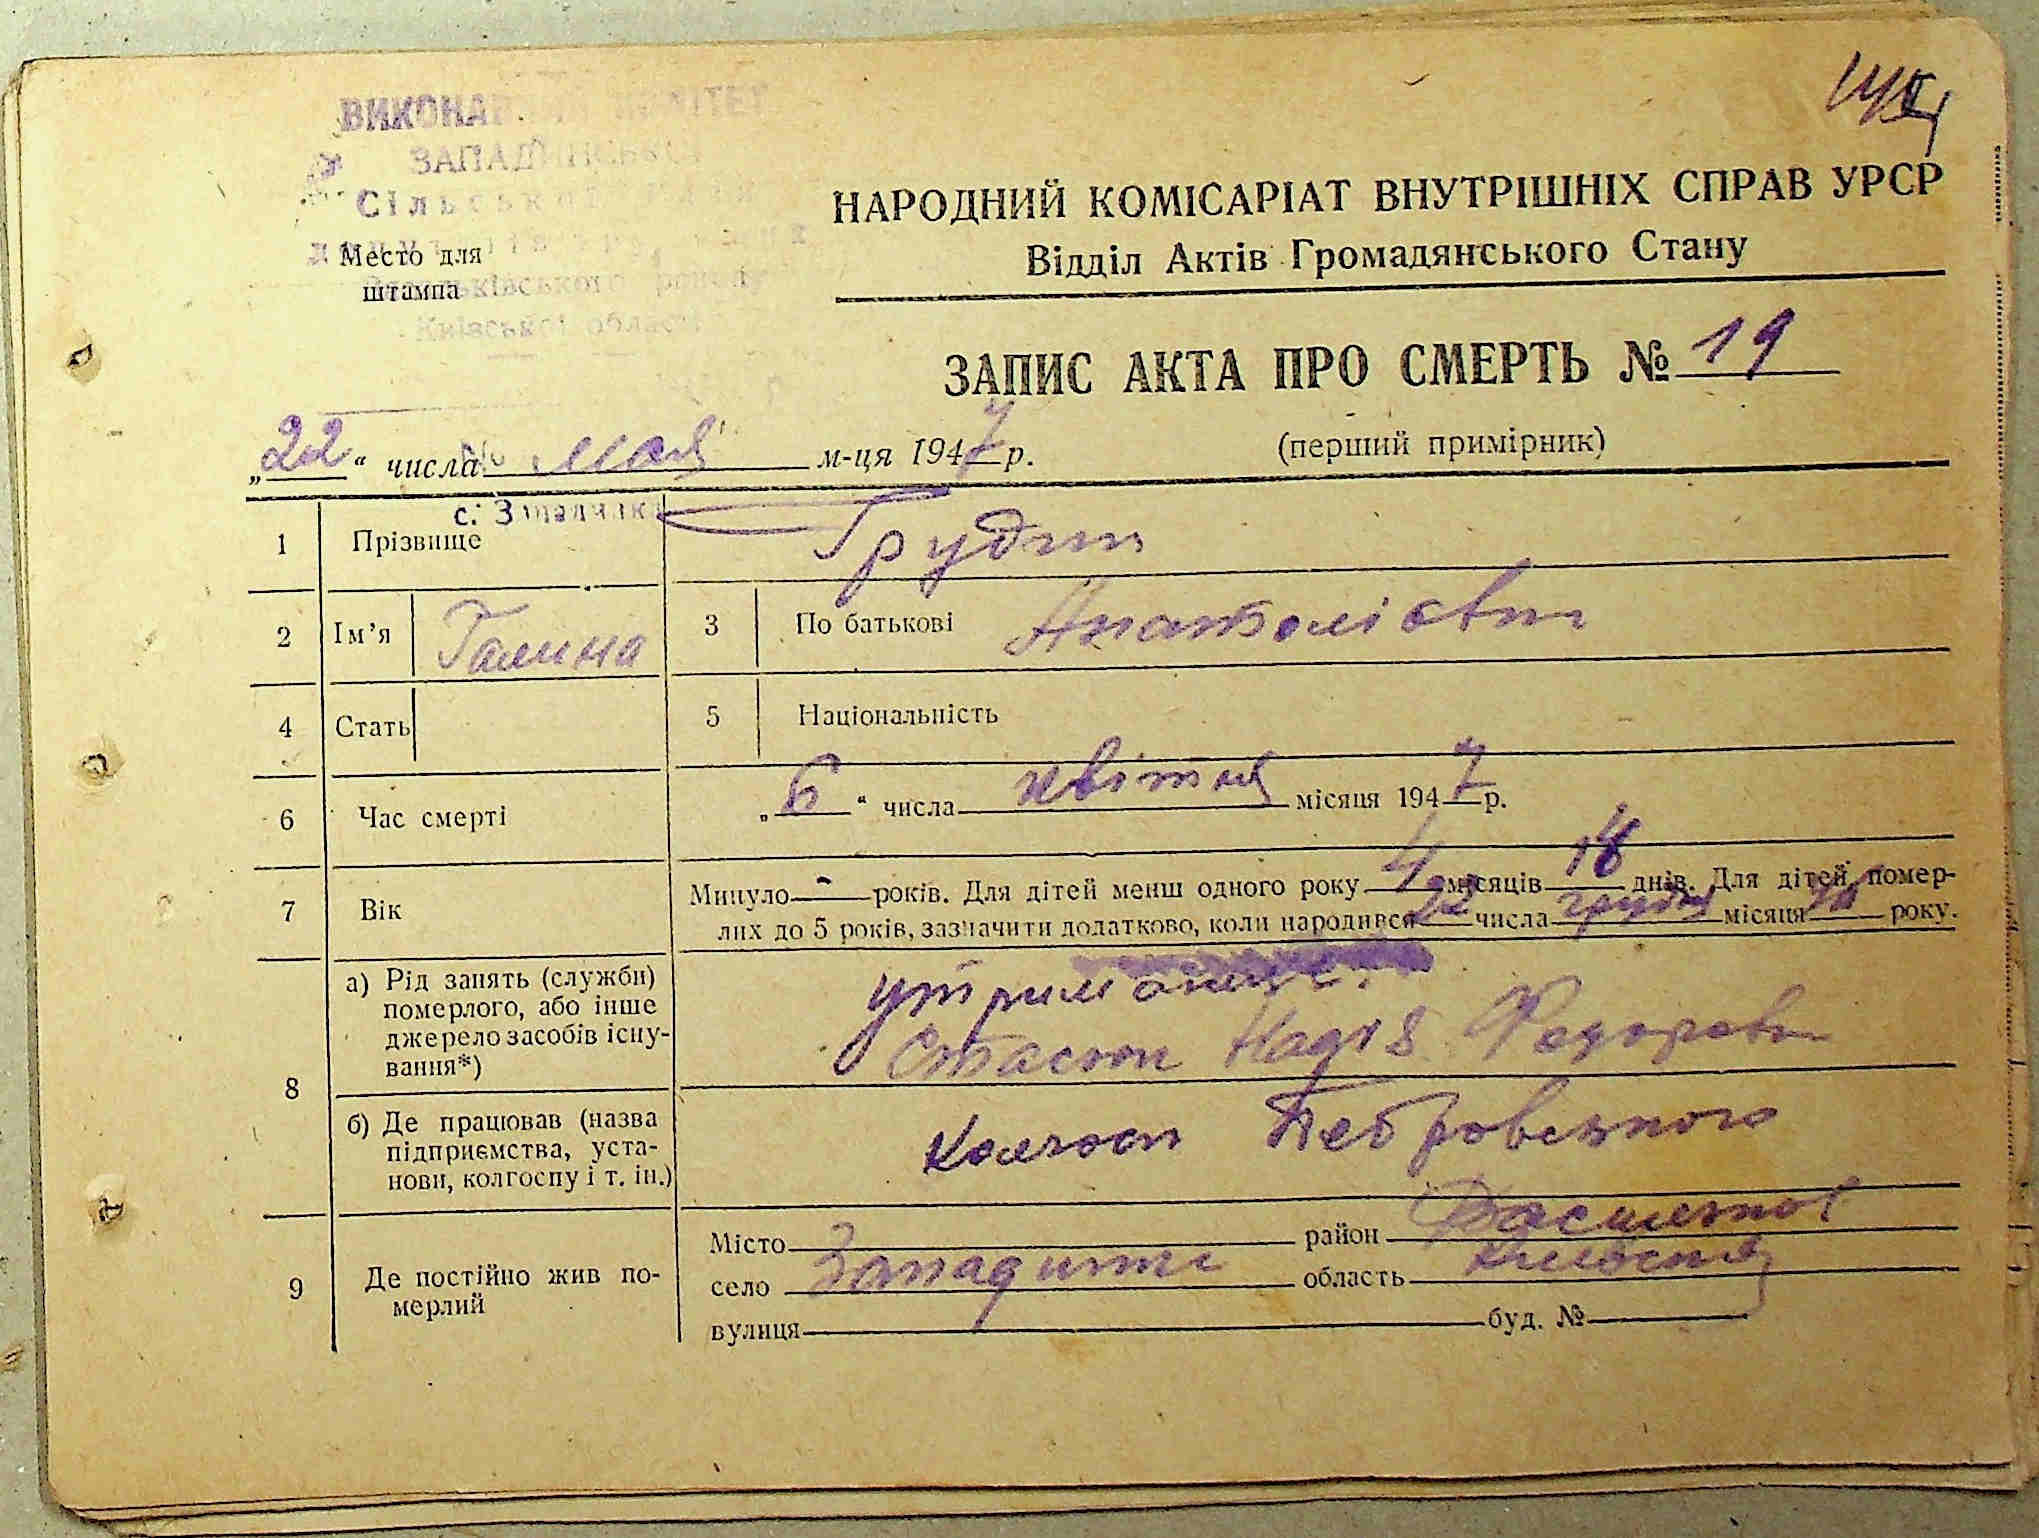 ВИКОНАВЧИЙ КОМІТЕТ
ЗАПАДИНСЬКОЇ
Сільської Ради
Васильківського району
Київської області
Место для
штампа
НАРОДНИЙ КОМІСАРІАТ ВНУТРІШНІХ СПРАВ УРСР
Відділ Актів Громадянського Стану
ЗАПИС АКТА ПРО СМЕРТЬ № 19
(перший примірник)
„22“ числа мая м-ця 1947 р.
с. Западинка
1 Прізвище Грудин
2 Ім’я Галина 3 По батькові Анатоліевна
4 Стать 5 Національність
6 Час смерті „6“ числа квітня місяця 1947 р.
7 Вік Минуло - років. Для дітей менш одного року 4 місяців 14 днів. Для дітей, помер-
лих до 5 років, зазначити додатково, коли народився 22 числа грудня місяця 46 року.
8 а) Рід занять (служби)
померлого, або інше
джерело засобів існу-
вання*)
утриманище
Надія Федоровн
б) Де працював (назва
підприємства, уста-
нови, колгоспу і т. ін.)
Колгосп Петровського
9 Де постійно жив по-
мерлий
Місто район Васильков
село Западинка область Киевская
вулиця буд. №